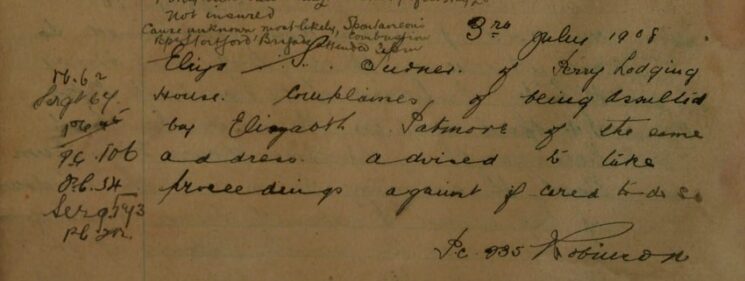 Not insured
Cause unknown most likely, Spontaneous
Combustion
Stortford Brigade attended
3rd July 1908
Eliza Turner of Perry Lodging
House. Complaines, of being assultid
by Elizabeth Patmore of the same
address. advised to take
proceedings against if cared to do so
P.c. 235 Robinson
P.b. 62
Sergt 64
P.c. 106
P.b. 54
Serg. 173